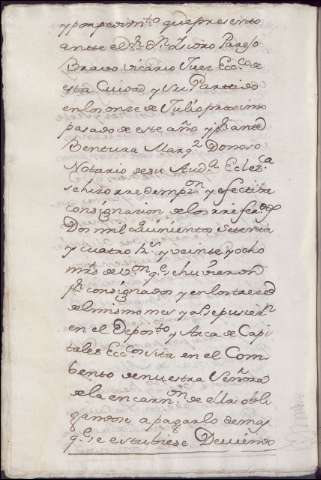 y por pedim.to que presento
ante el S.r D.n Isidro Parejo
Bravo Vicario Juez Ecc.co de
esta Ciudad y su Partido
en los onze de Julio proximo
pasado de este año y p.r ante D.n
Bentura Marq.z Donoso
Notario de su Aud.a Eclez.ca
se hizo redemp.on y efectiva
consignacion de los referidos
Dos mil ochocientos setenta
y cuatro R.s y veinte y ocho
mrs de v.on q.e se huvieron
p.r consignados y en los trece
del mismo mes y año se pusier.n
en el Deposito y Arca de Capi
tales Ecc.cos sita en el Com
bento de nuestra Señora
de la encarn.on de ella obli
gandose a pagarlo demas
q.e se estubiese Deviendo